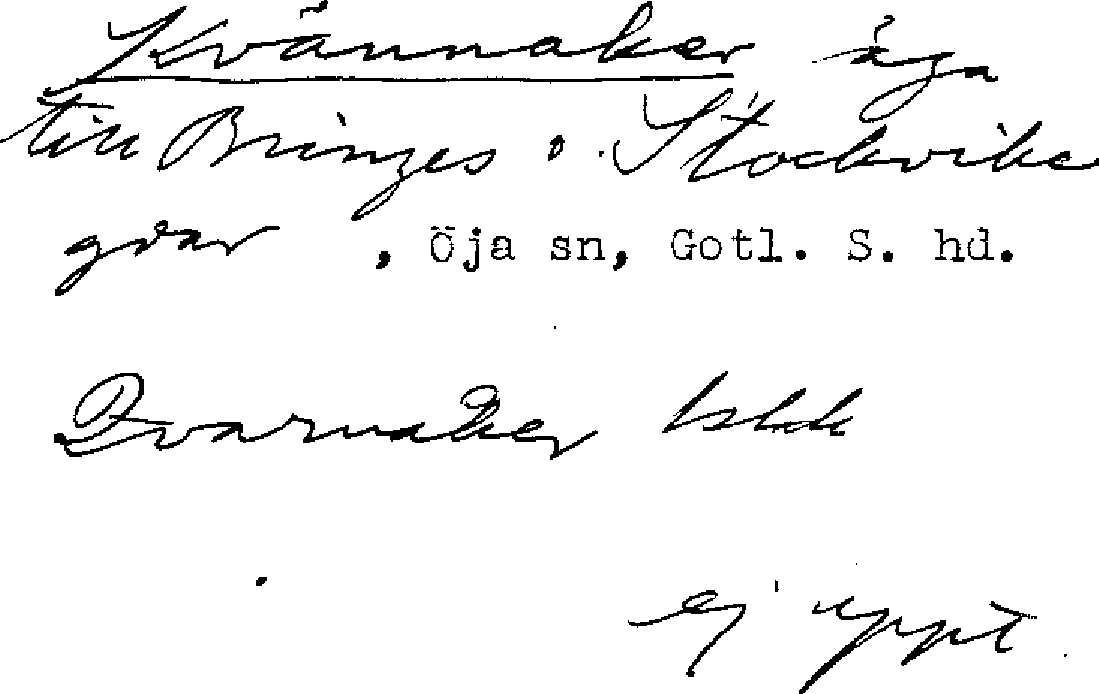 Kvännaker äga
till Bringes o. Stockvike
gdar , Öja sn, Gotl. S. hd.
Qvarnaker
ej uppt